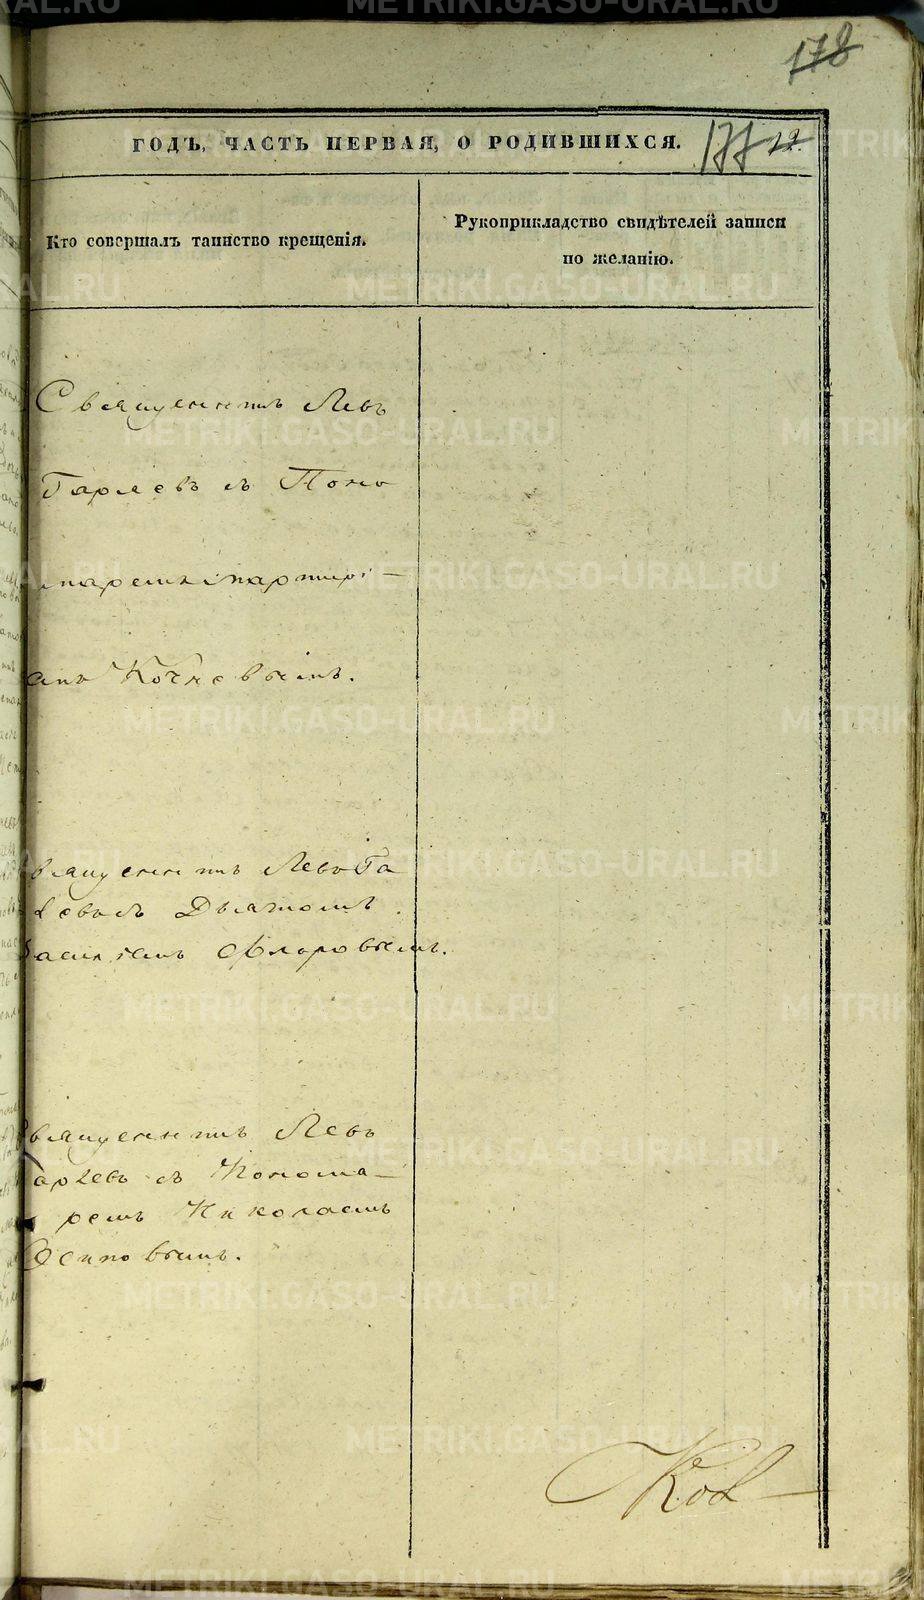 178
ГОДЪ, ЧАСТЬ ПЕРВАЯ, О РОДИВШИХСЯ.
177
Кто совершалъ таинство крещенія.
Рукоприкладство свидѣтелей записи
по желанію.
Священникъ Левъ
Гаряевъ съ Поно
маремъ
Кочневымъ.
вященникъ Левъ Га
евъ съ Дьячкомъ
асильемъ Флоровымъ.
вященникъ Левъ
аряевъ съ Понома-
ремъ Николаемъ
Осиповымъ.
METRIKI.GASO-URAL.RU